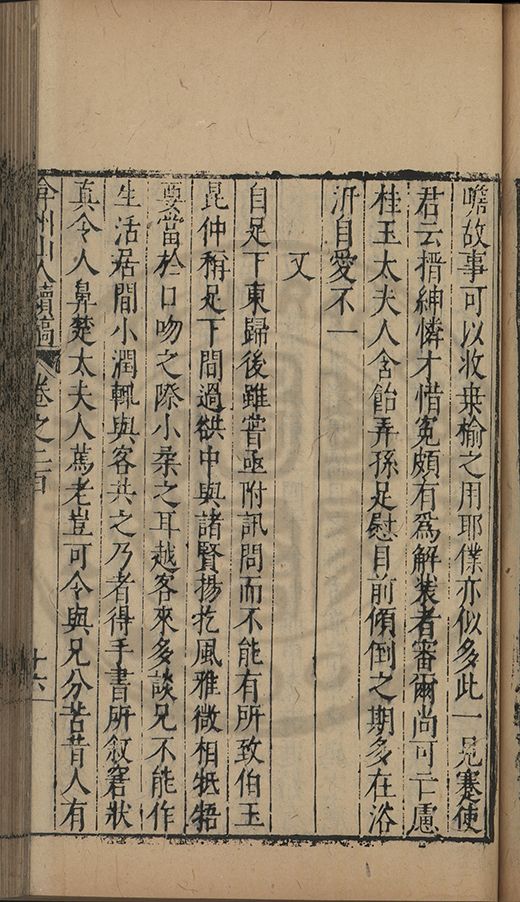 嗟故事可以收桒榆之用耶僕亦似多此一見蹇使
君云搢紳憐才惜寃頗有爲解裝者審爾尚可亡慮
桂玉太夫人含飴弄孫足慰目前傾倒之期多在浴
沂自愛不一
又
自足下東歸後雖嘗亟附訊問而不能有所致伯玉
昆仲稱足下間過谼中與諸賢揚扢風雅微相牴牾
要當於口吻之際小柔之耳越客來多談兄不能作
生活居間小潤輒與客共之乃者得手書所敘窘狀
真令人鼻楚太夫人篤老豈可令與兄分苦昔人有
弇州山人續稿 卷之二百 十六